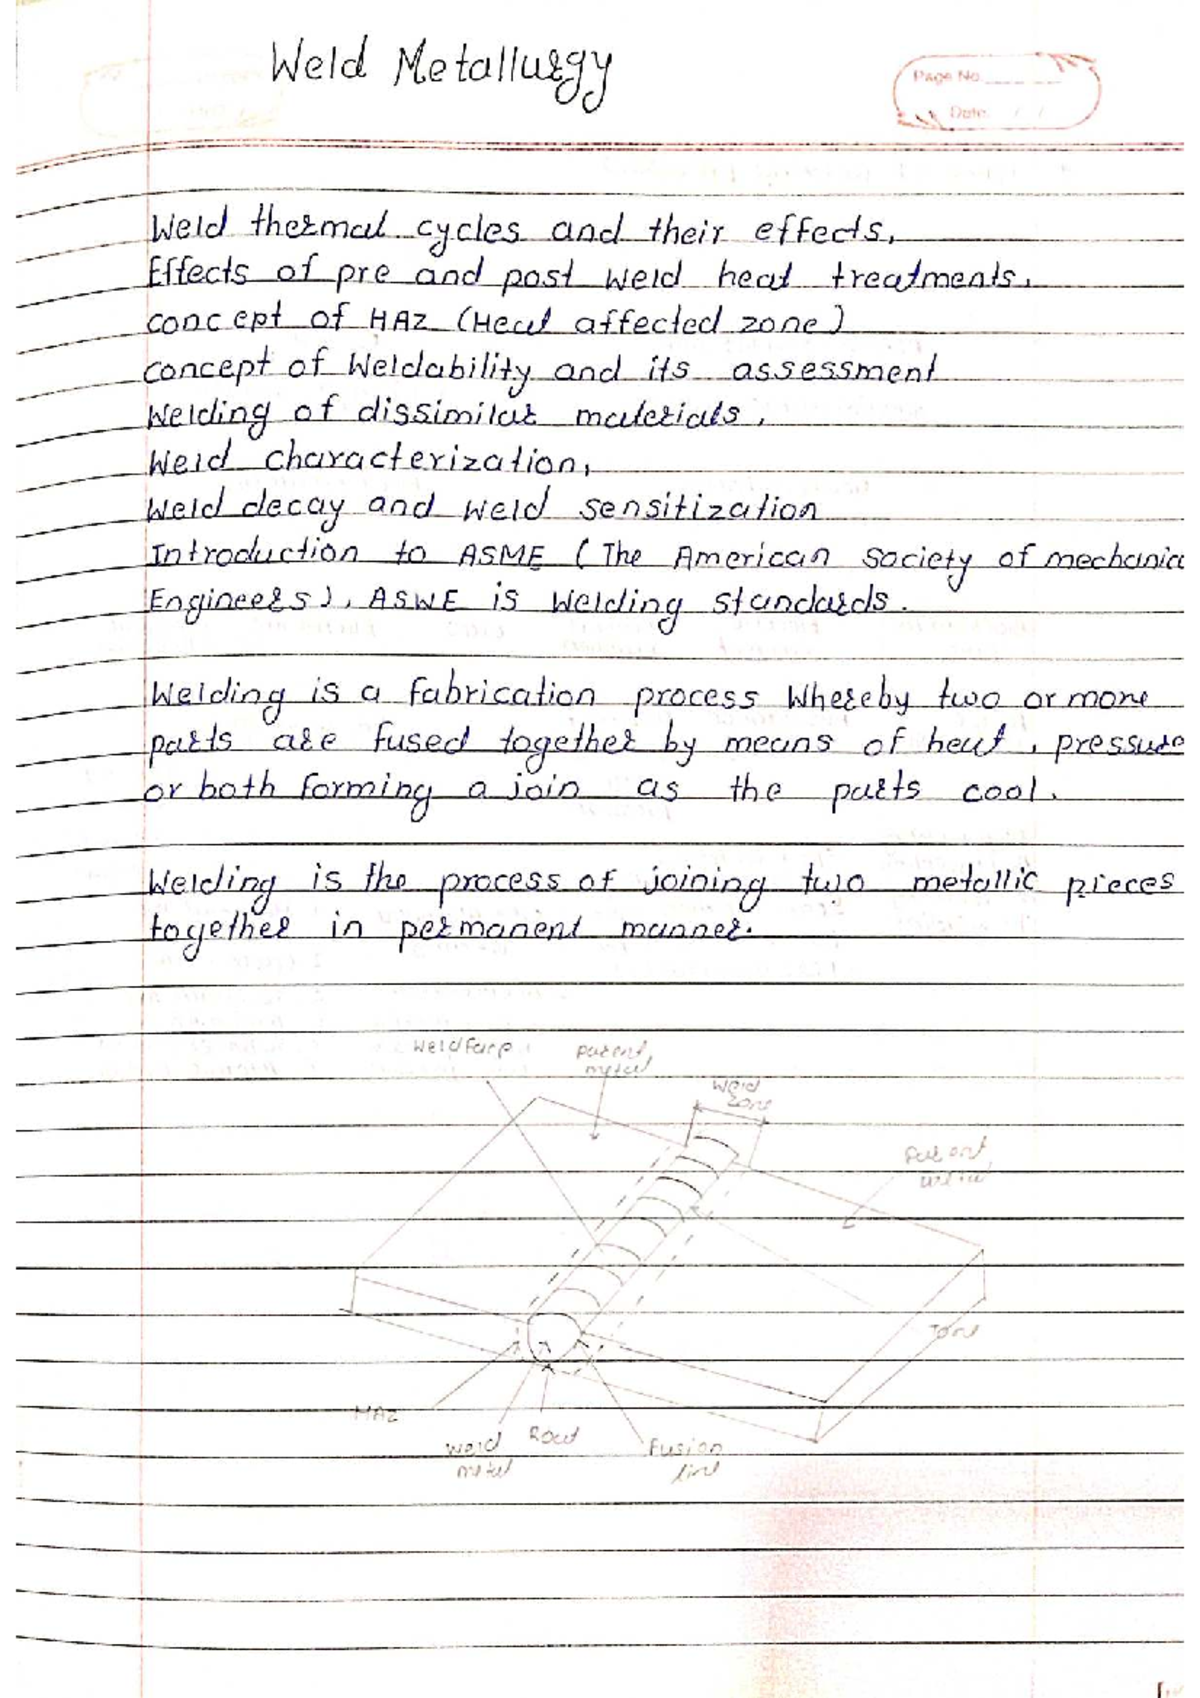 Weld Metallurgy
Page No.
Date. / /
Weld thermal cycles and their effects,
Effects of pre and post weld heat treatments,
concept of HAZ (Heat affected zone)
concept of Weldability and its assessment
Welding of dissimilar materials,
Weld characterization,
Weld decay and weld sensitization
Introduction to ASME (The American Society of mechanic
Engineers), ASWE is welding standards.
Welding is a fabrication process Whereby two or more
parts are fused together by means of heat, pressure
or both forming a join as the parts cool.
Welding is the process of joining two metallic pieces
together in permanent manner.
Weld Face
parent
metal
Weld
Zone
Parent
metal
HAZ
Weld
metal
Root
Fusion
line